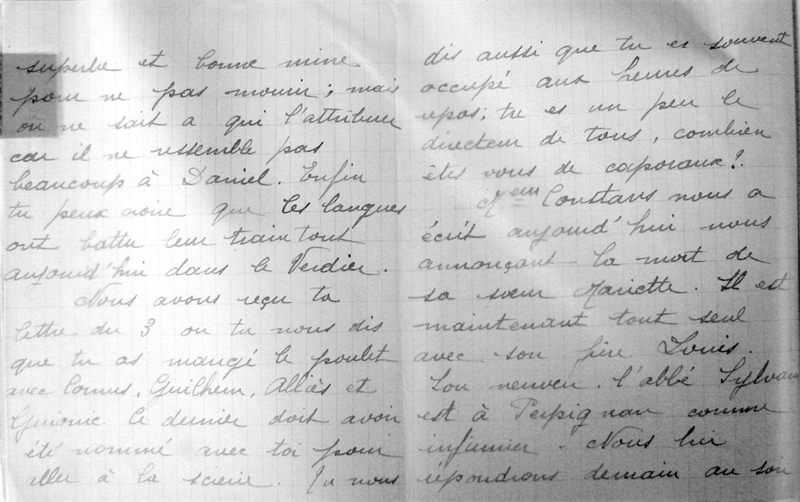 superbe et bonne mine
pour ne pas mourir; mais
on ne sait a qui l'attribuer
car il ne ressemble pas
beaucoup à Daniel. Enfin
tu peux croire que les langues
ont battu leur train tout
aujourd'hui dans le Verdier.
Nous avons reçu ta
lettre du 3 ou tu nous dis
que tu as mangé le poulet
avec Cornus, Guilhem, Alliès et
Ce dernier doit avoir
été nommé avec toi pour
aller à la scierie. Tu nous
dis aussi que tu es souvent
occupé aux heures de
repos; tu es un peu le
directeur de tous, combien
êtes vous de caporaux?
Constans nous a
écrit aujourd'hui nous
annonçant la mort de
sa sœur Mariette. Il est
maintenant tout seul
avec son père Louis.
Son neveu. l'abbé Sylvain
est à Perpignan comme
infirmier. Nous lui
répondrons demain au soir